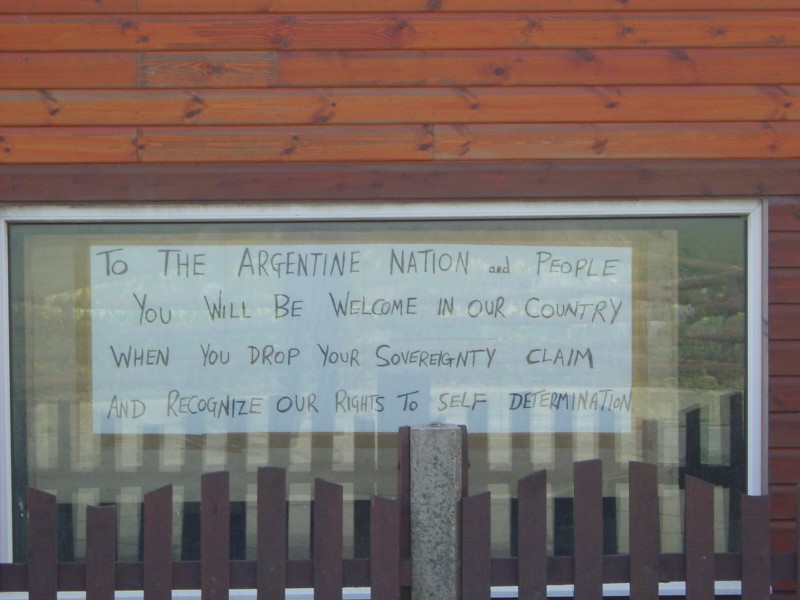 To THE ARGENTINE NATION and PEOPLE
YOU WILL BE WELCOME IN OUR COUNTRY
WHEN YOU DROP YOUR SOVEREIGNTY CLAIM
AND RECOGNIZE OUR RIGHTS To SELF DETERMINATION